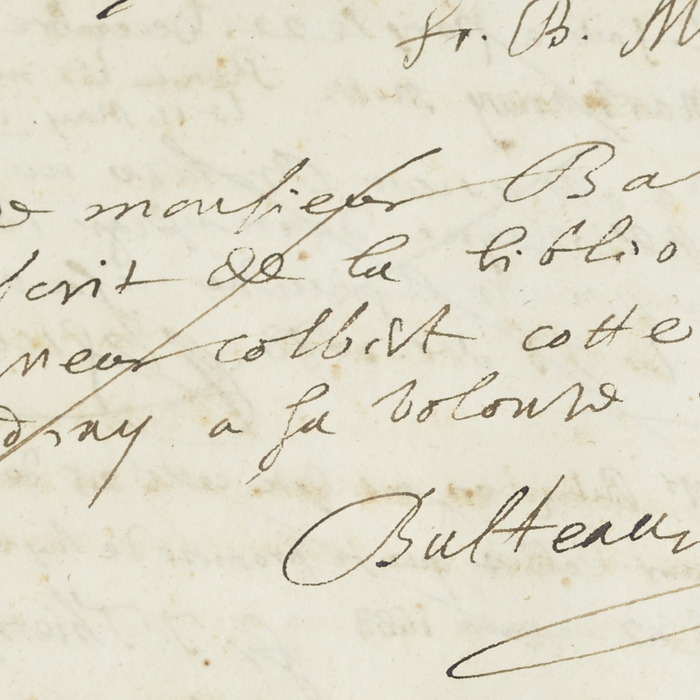 fr. B. M
de monsieur Ba
scrit de la biblio
neur colbert cotte
dray a sa volonte
Bulteau